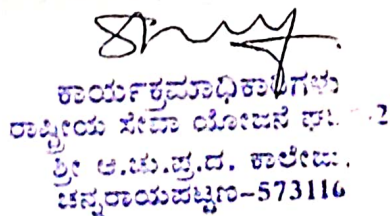 ಕಾರ್ಯಕ್ರಮಾಧಿಕಾರಿಗಳು
ರಾಷ್ಟ್ರೀಯ ಸೇವಾ ಯೋಜನೆ ಘ 2
ಶ್ರೀ ಆ.ಚು.ಪ್ರ.ದ. ಕಾಲೇಜು.
ಚನ್ನರಾಯಪಟ್ಟಣ-573116